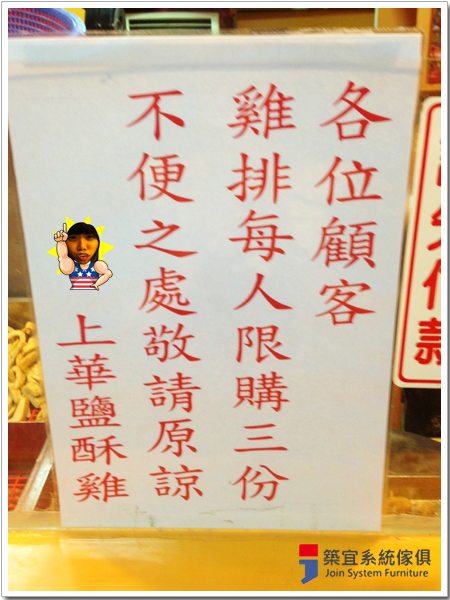 各位顧客
雞排每人限購三份
不便之處敬請原諒
上華鹽酥雞
築宜系統傢俱
Join System Furniture